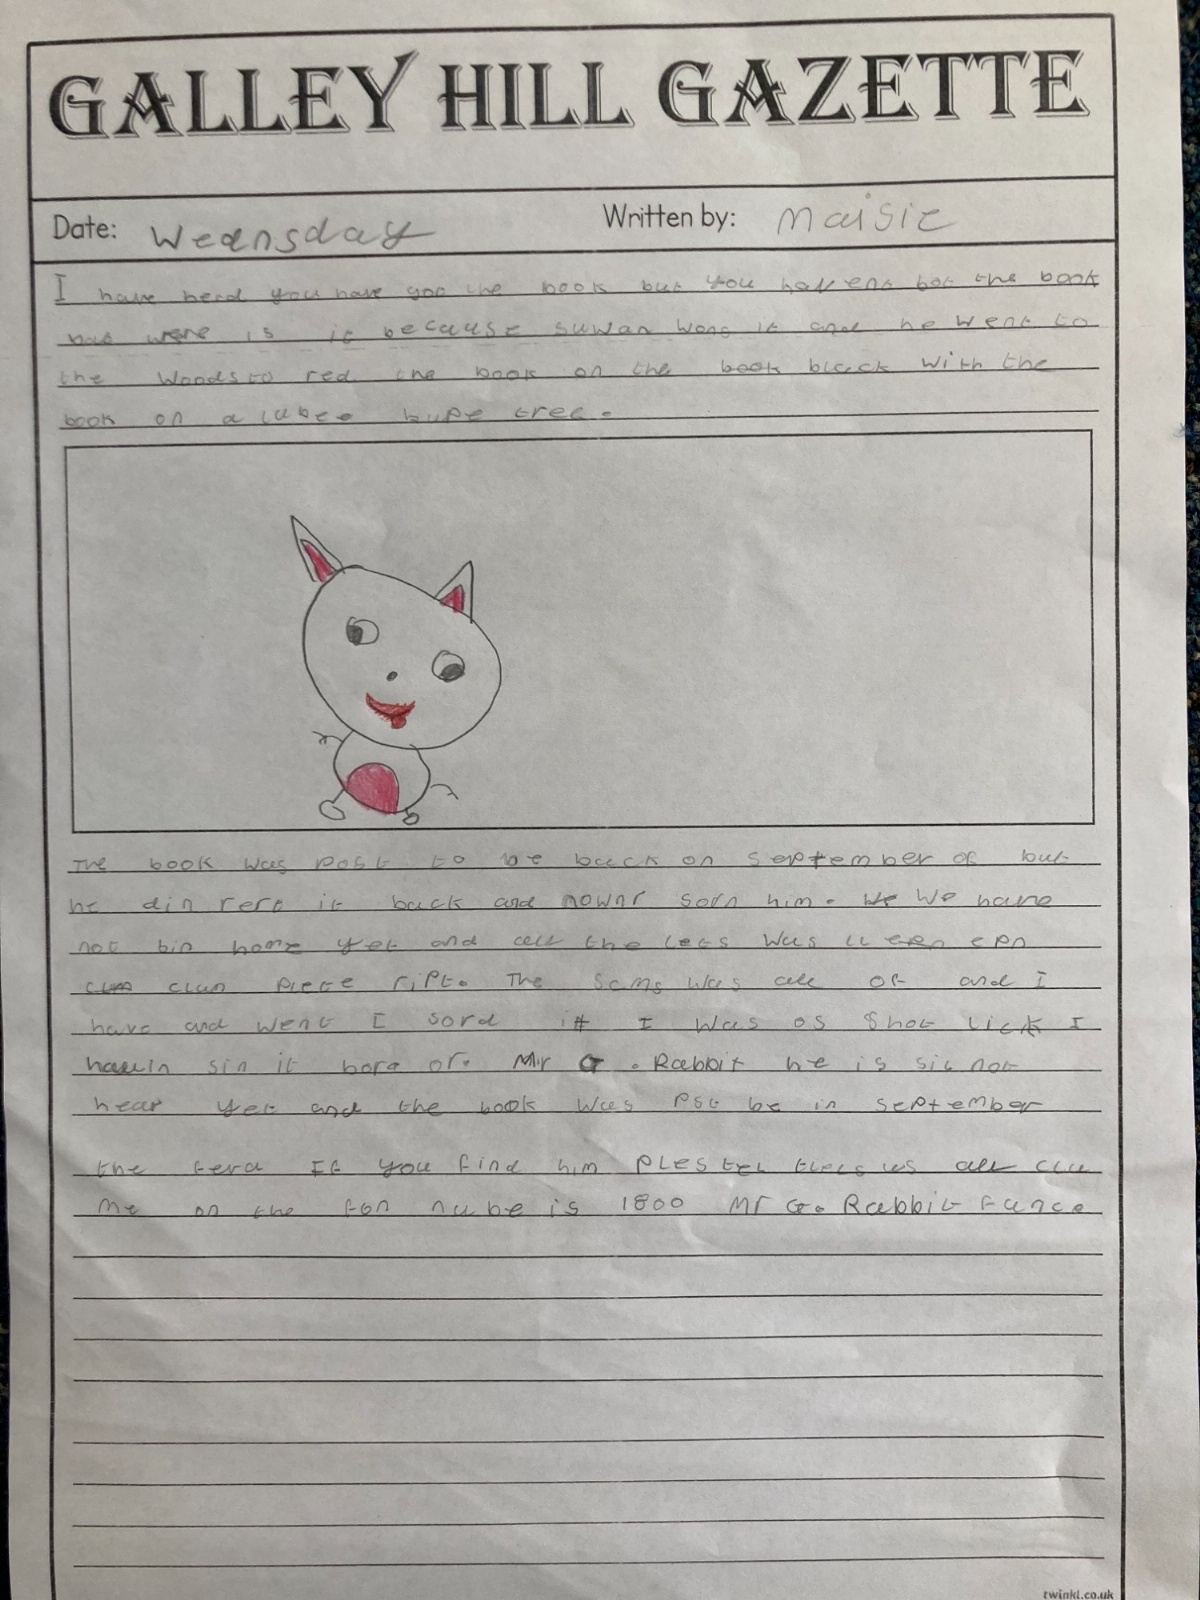 GALLEY HILL GAZETTE
Date: Weansday Written by: Maisie
I have herd you have got the book but you havent bot the book
is it because suwan wons it and he went to
the Woods to red the book on the book black with the
book on a tree.
The book was post to be back on September of but
he din rere it back and sorn him. He We have
not bin home yet and all the was
clun piece ript. The was all of and I
have and went I sord it I was os Shot lick I
sin it bora of. Mr G. Rabbit he is sit not
hear yet and the book was pst be in September
the terd If you find him ples tel us all
me on the fon nube is 1800 Mr G. Rabbit
twinkl.co.uk